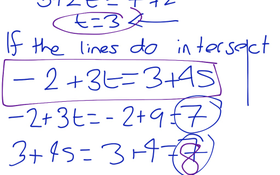 t=3
If the lines do intersect
-2+3t=3+4s
-2+3t=-2+9=7
3+4s=3+4=7
8